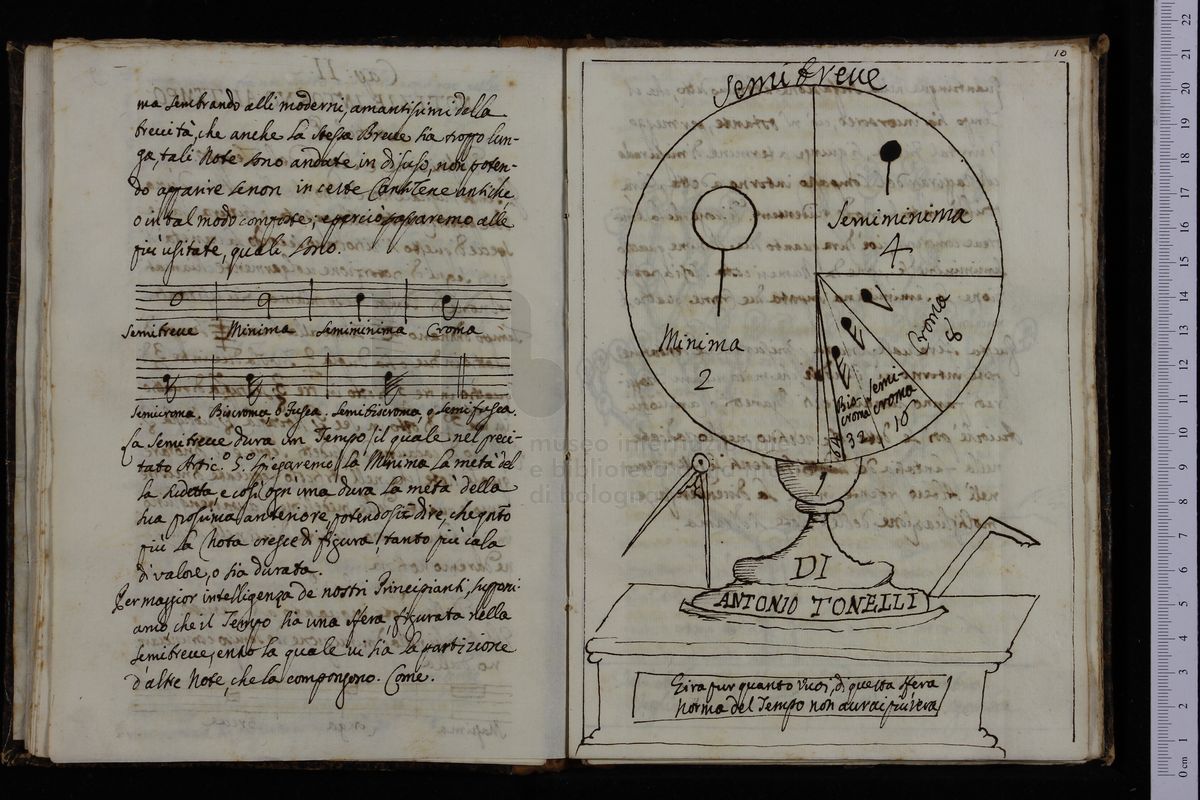 ma sembrando alli moderni, amantissimi della
brevità, che anche la stessa Breve sia troppo lun-
ga, tali Note sono andate in disuso, non poten-
do apparire se non in certe Cantilene antiche,
o in tal modo composte; e perciò passaremo alle
più usitate, quali sono.
Semibreve Minima Semiminima Croma
Semicroma. Biscroma o Fusea. Semibiscroma, o Semifusea.
La Semibreve dura un Tempo (il quale nel preci-
tato Artic.º 5.º spiegaremo) la Minima la metà del
la sudetta e così ogn'una dura la metà della
sua prossima anteriore, potendosi dire, che qnto
più la Nota cresce di figura, tanto più cala
di valore, o sia durata.
Per maggior intelligenza de nostri Principianti, supponi-
amo che il Tempo sia una sfera, figurata nella
Semibreve, entro la quale vi sia la partizione
d'altre Note, che la compongono. Come.
10
Semibreve
Semiminima
4
Minima
2
Croma
8
Semi-
croma
16
Bis-
croma
32
64
1
DI
ANTONIO TONELLI
Gira pur quanto vuoi, di questa sfera
Norma del Tempo non avrai più vera
museo inter
e biblioteca
di bologna
0 cm 1 2 3 4 5 6 7 8 9 10 11 12 13 14 15 16 17 18 19 20 21 22